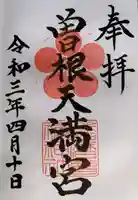 奉拝
曽根天満宮
令和三年四月十日